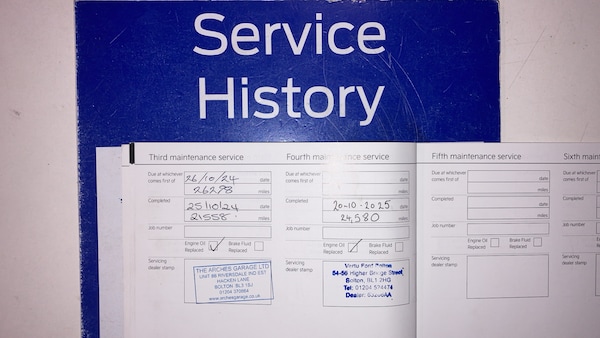 Service
History
Third maintenance service
Due at whichever
comes first of
26/10/24 date
26278 miles
Completed
25/10/24 date
21558 miles
Job number
Engine Oil
Replaced
Brake Fluid
Replaced
Servicing
dealer stamp
THE ARCHES GARAGE LTD
UNIT 8B RIVERSDALE IND EST
HACKEN LANE
BOLTON BL3 1SJ
01204 370984
www.archesgarage.co.uk
Fourth maintenance service
Due at whichever
comes first of
date
miles
Completed
20-10-2025 date
24,580 miles
Job number
Engine Oil
Replaced
Brake Fluid
Replaced
Servicing
dealer stamp
Vertu Ford Bolton
54-56 Higher Bridge Street
Bolton, BL1 2HG
Tel: 01204 574474
Dealer:
Fifth maintenance service
Due at whichever
comes first of
date
miles
Completed
date
miles
Job number
Engine Oil
Replaced
Brake Fluid
Replaced
Servicing
dealer stamp
Sixth main
Due at whichever
comes first of
Completed
Job number
Servicing
dealer stamp